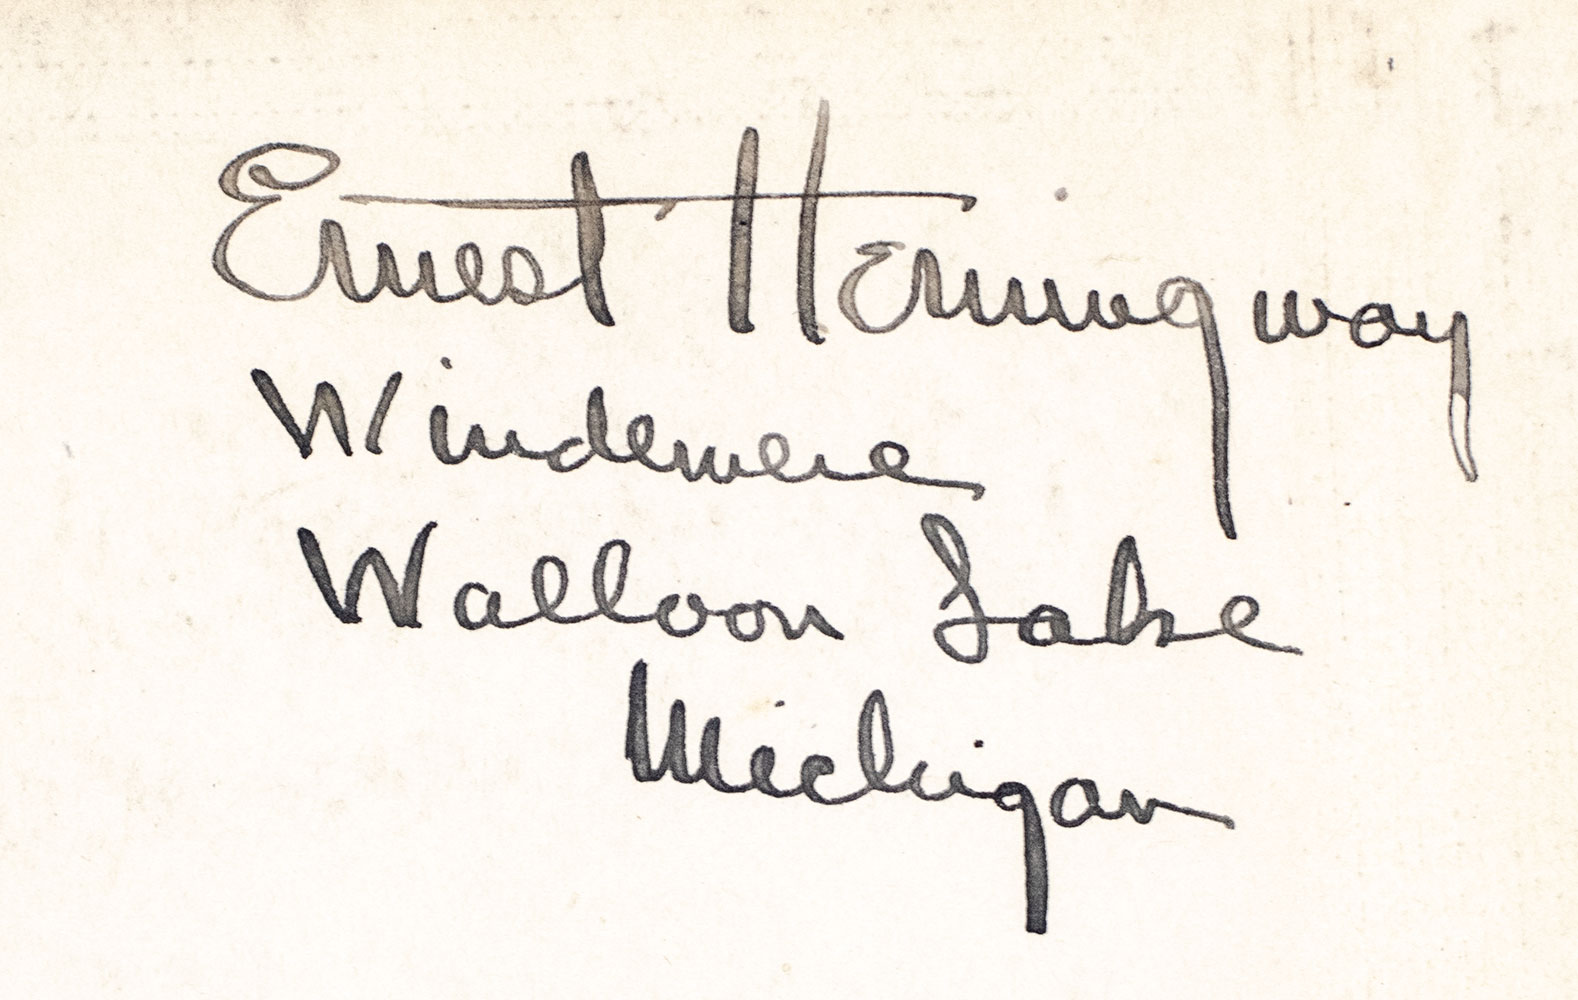 Ernest Hemingway
Windemere
Walloon Lake
Michigan